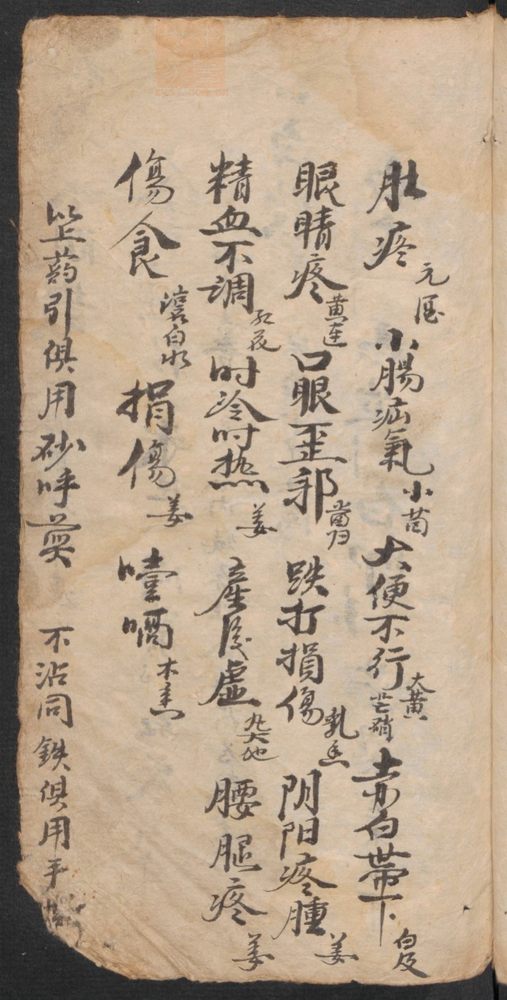 肚疼 元胡 小腸疝氣 小茴 大便不行 大黄 芒硝 赤白帶下 白及
眼睛疼 黄連 口眼歪邪 當归 跌打損傷 乳香 阴阳疼腫 姜
精血不調 红花 时冷时热 姜 產後虛 九大地 腰腿疼 姜
傷食 滾白水 損傷 姜 噎嗝 木香
以上葯引俱用砂呼 不沾同鉄俱用手